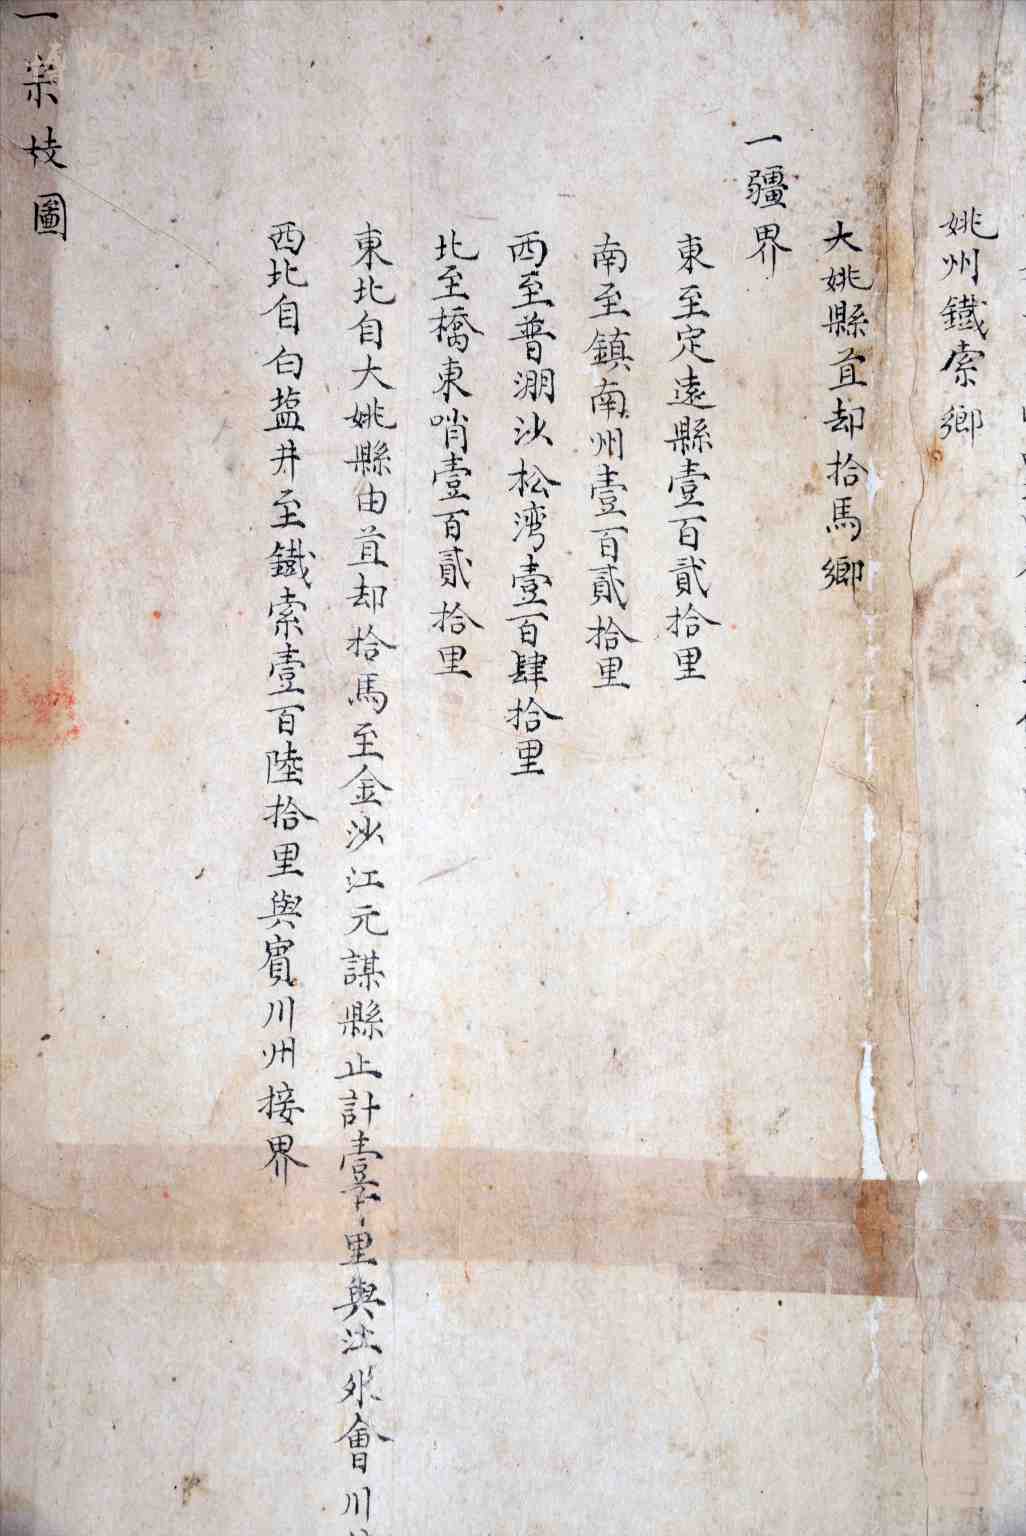 姚州鐵索鄉
大姚縣苴却拾馬鄉
一疆界
東至定遠縣壹百貳拾里
南至鎮南州壹百貳拾里
西至普淜沙松湾壹百肆拾里
北至橋東哨壹百貳拾里
東北自大姚縣由苴却拾馬至金沙江元謀縣止計壹千里與江外會川
西北自白塩井至鐵索壹百陸拾里與賓川州接界
一宗枝圖